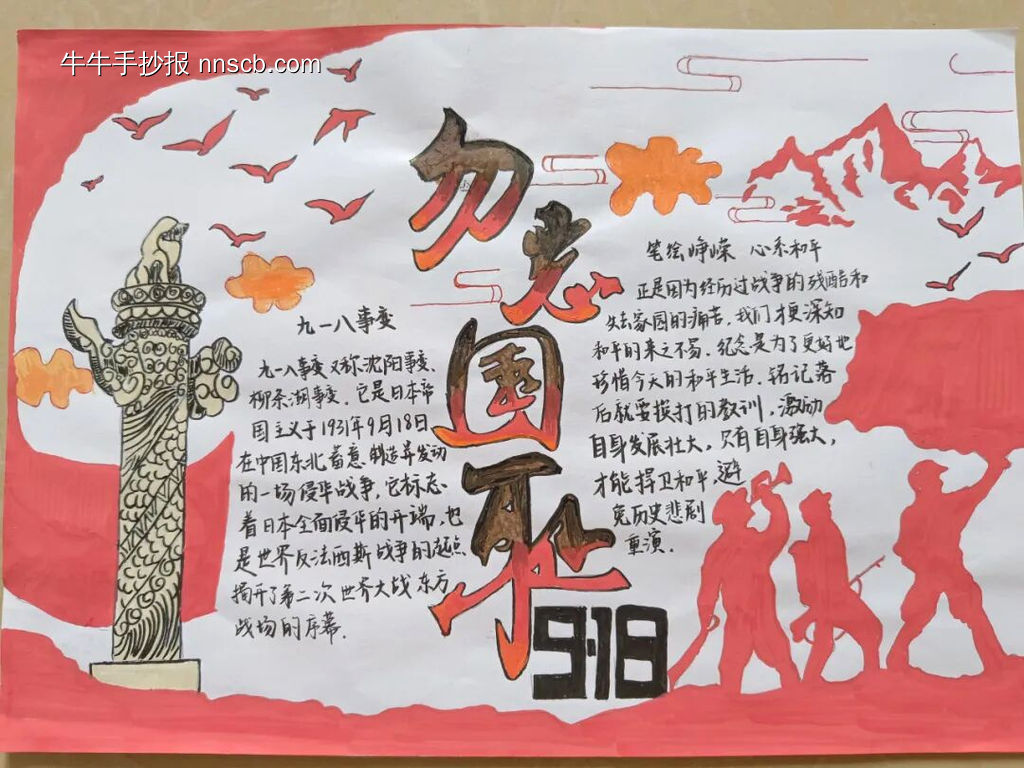 牛牛手抄报 nnscb.com
勿忘国耻
9·18
九一八事变
九一八事变又称沈阳事变、
柳条湖事变。它是日本帝
国主义于1931年9月18日
在中国东北蓄意制造并发动
的一场侵华战争,它标志
着日本全面侵华的开端,也
是世界反法西斯战争的起点
揭开了第二次世界大战东方
战场的序幕.
笔绘峥嵘 心系和平
正是因为经历过战争的残酷和
失去家园的痛苦,我们才更深知
和平的来之不易.纪念是为了更好地
珍惜今天的和平生活.铭记落
后就要挨打的教训,激励
自身发展壮大,只有自身强大,
才能捍卫和平,避
免历史悲剧
重演.